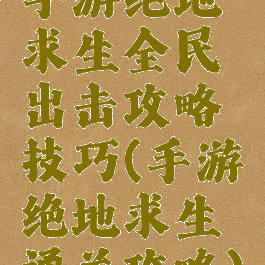 手游绝地
求生全民
出击攻略
技巧(手游
绝地求生
通关攻略)